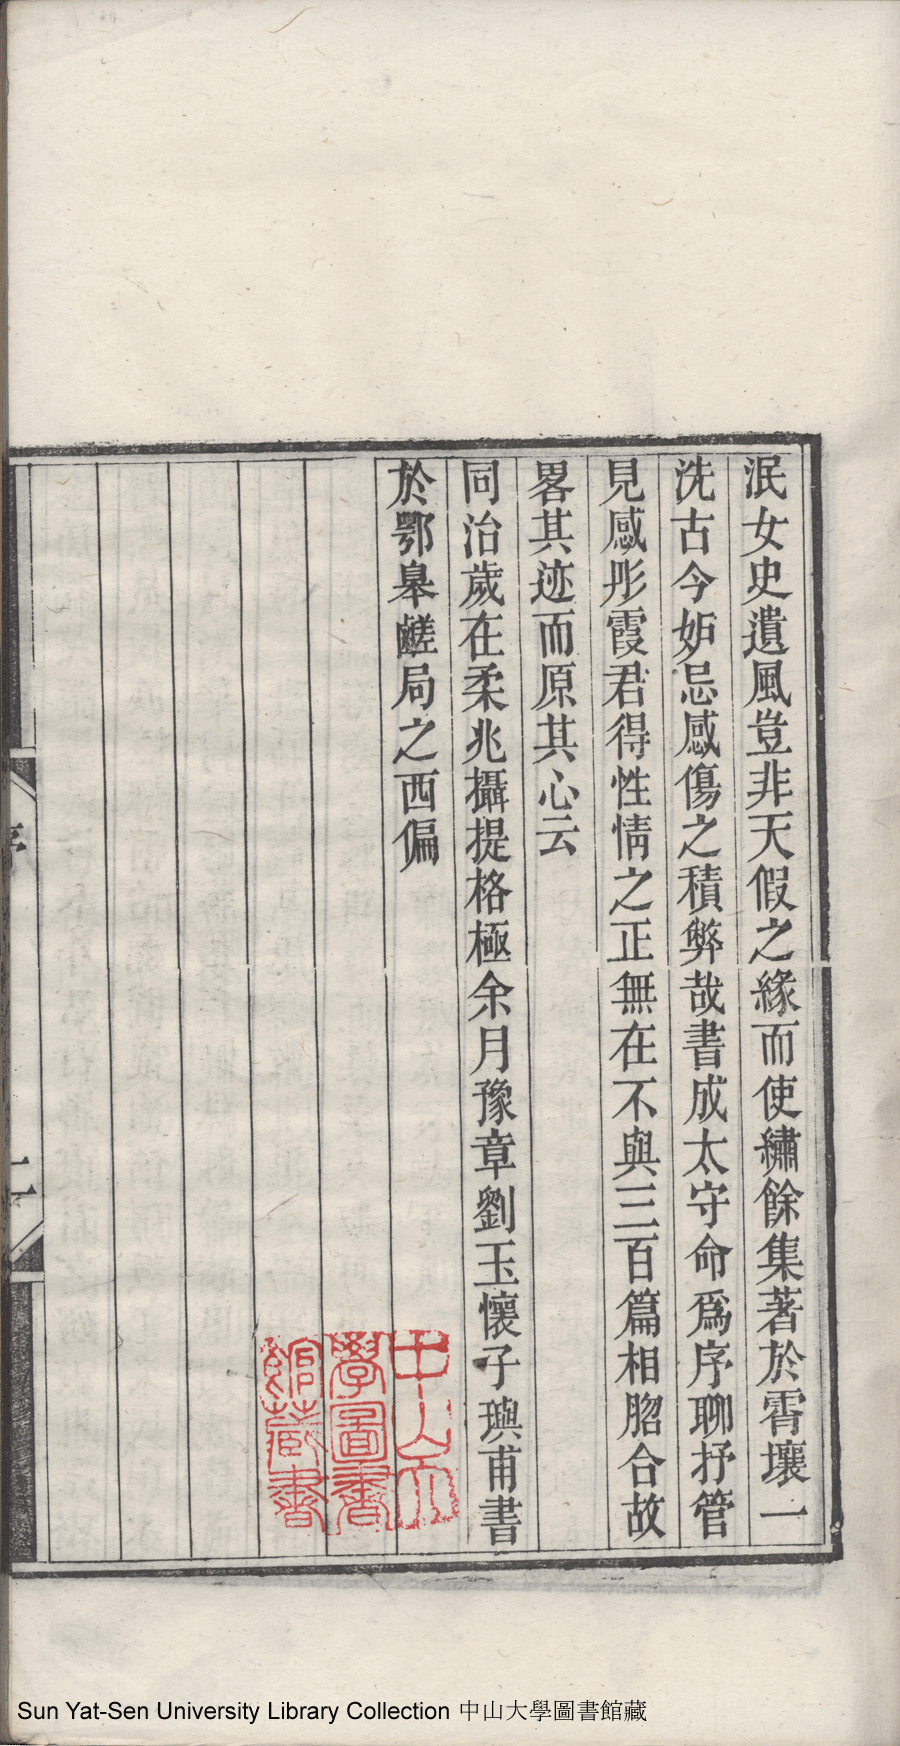 泯女史遺風豈非天假之緣而使繡餘集著於霄壤一
洗古今妒忌感傷之積弊哉書成太守命爲序聊抒管
見感彤霞君得性情之正無在不與三百篇相脗合故
畧其迹而原其心云
同治歲在柔兆攝提格極余月豫章劉玉懷子璵甫書
於鄂皋鹺局之西偏
序
二
中山大
學圖書
館藏書
Sun Yat-Sen University Library Collection 中山大學圖書館藏